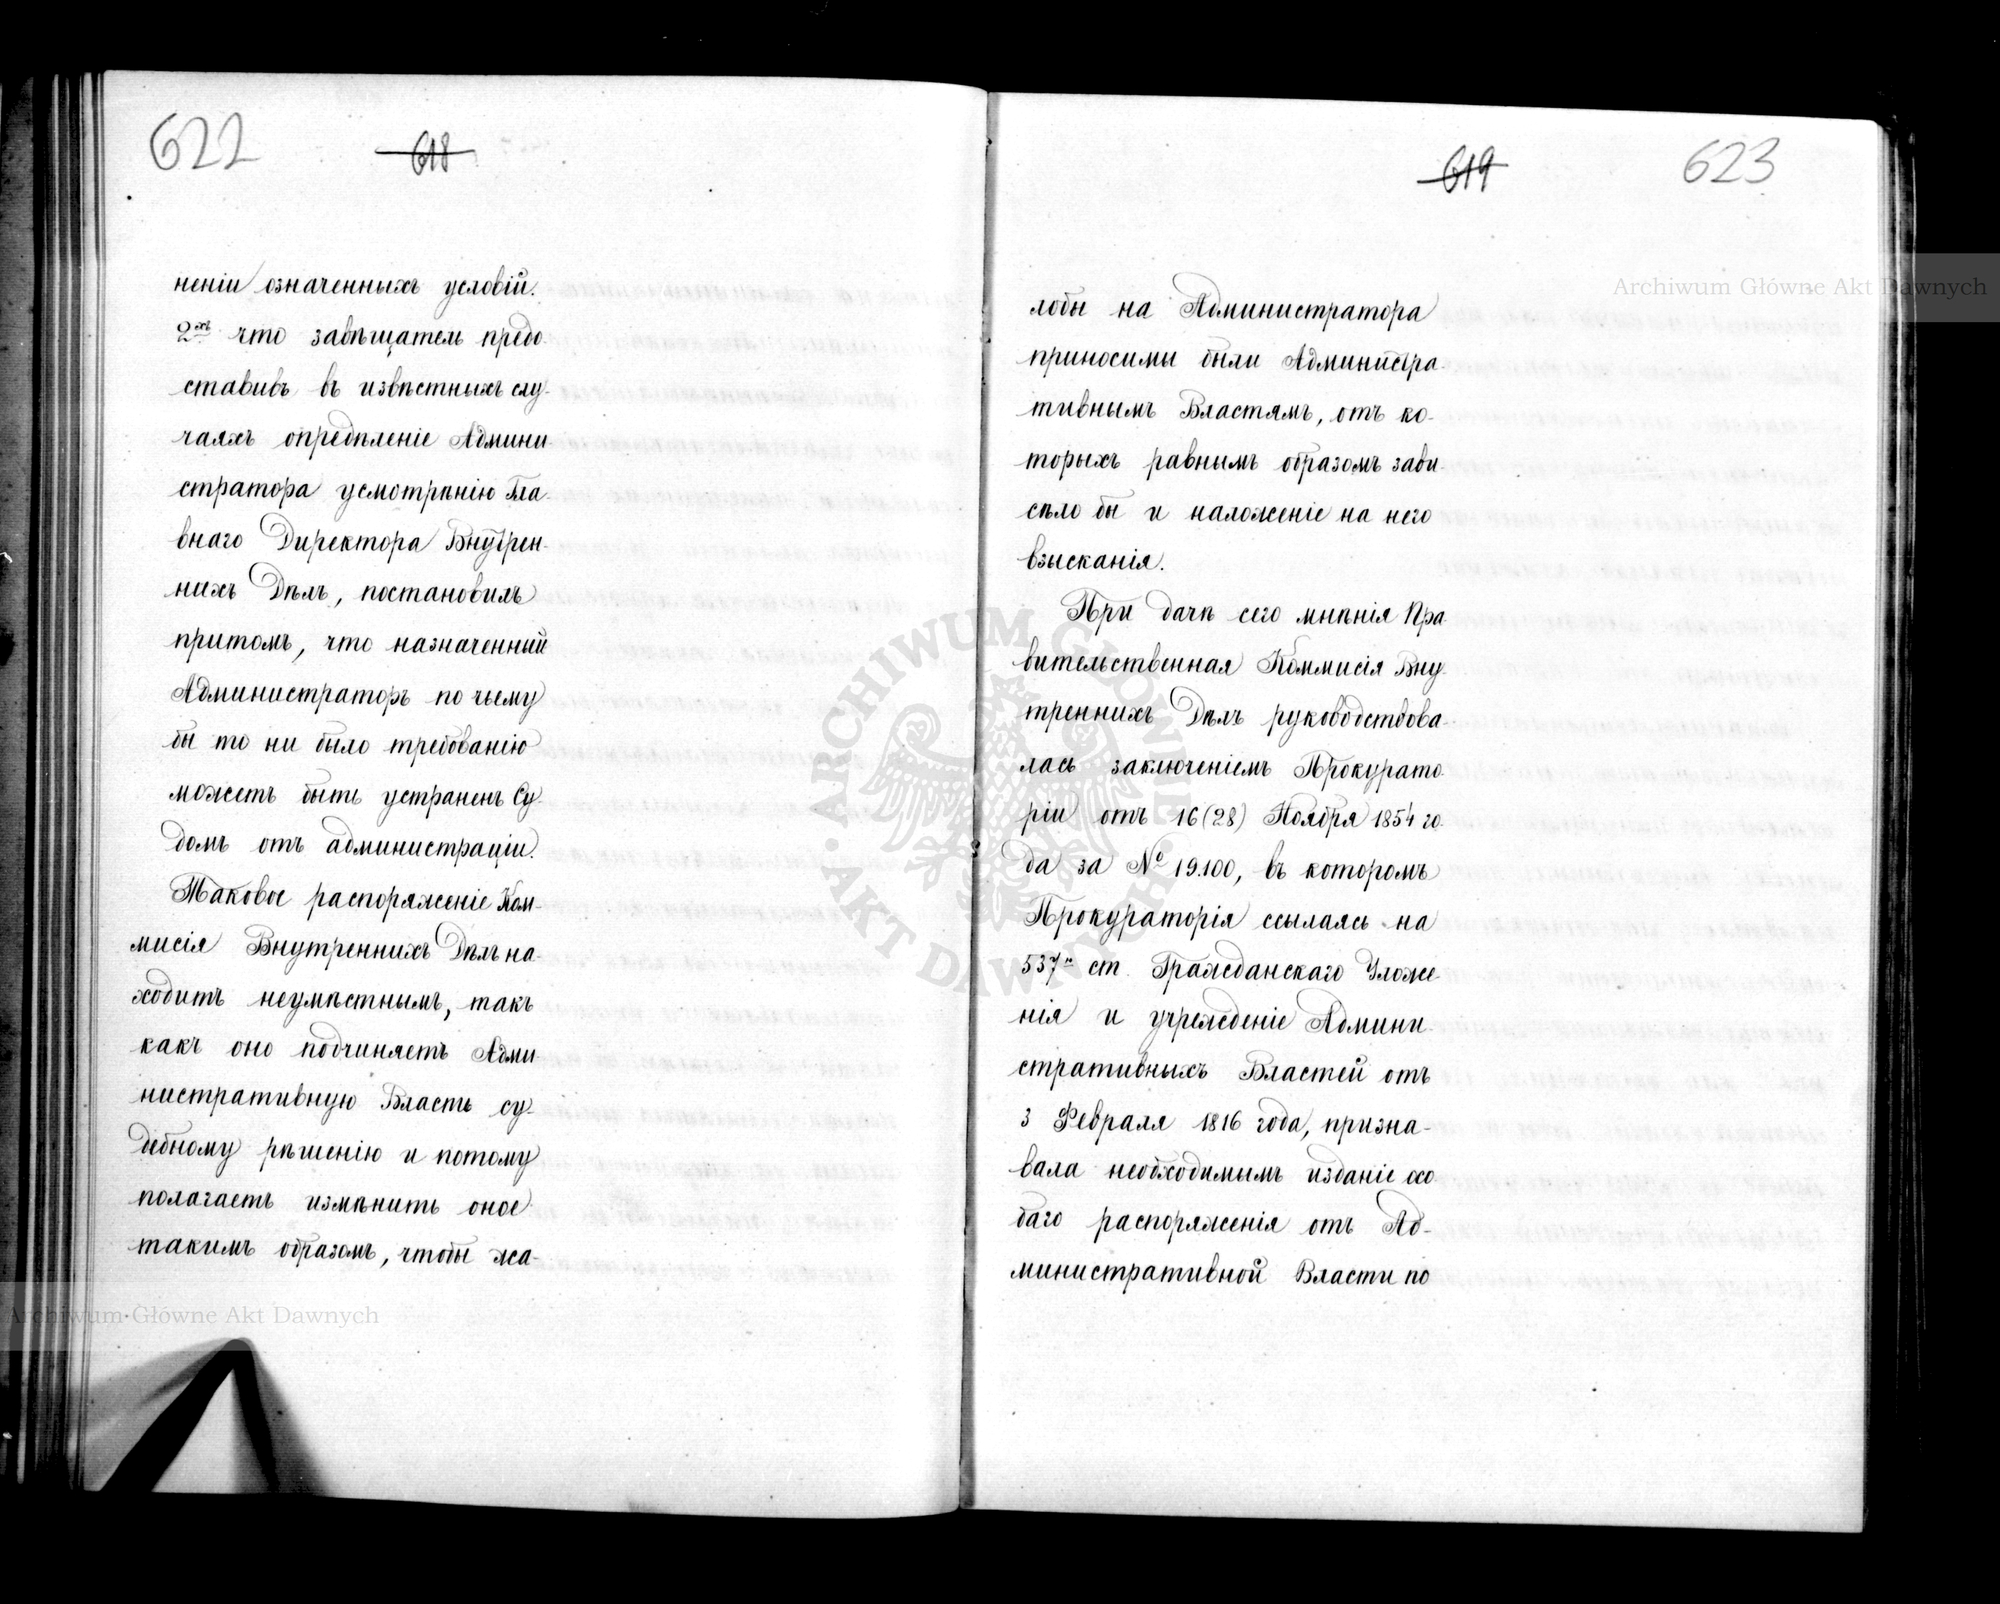 622
618
неніи означенныхъ условій.
2хъ что завѣщатель предо
ставивъ въ извѣстныхъ слу-
чаяхъ опредѣленіе Админи
стратора усмотрѣнію Гла-
внаго Директора Внутрен-
нихъ Дѣлъ, постановилъ
притомъ, что назначенный
Администраторъ по чьему
бы то ни было требованію
можетъ быть устраненъ Су-
домъ отъ администраціи.
Таковое распоряженіе Ком-
мисія Внутреннихъ Дѣлъ на-
ходитъ неумѣстнымъ, такъ
какъ оно подчиняетъ Адми-
нистративную Власть су-
дебному рѣшенію и потому
полагаетъ измѣнить оное
такимъ образомъ, чтобы жа-
619
623
лобы на Администратора
приносимы были Администра-
тивнымъ Властямъ, отъ ко-
торыхъ равнымъ образомъ зави
сѣло бы и наложеніе на него
взысканія.
При дачѣ сего мнѣнія Пра
вительственная Коммисія Вну-
треннихъ Дѣлъ руководствова-
лась заключеніемъ Прокурато
ріи отъ 16 (28) Ноября 1854 го
да за № 19.100, въ которомъ
Прокураторія ссылаясь на
537 ст. Гражданскаго Уложе-
нія и учрежденіе Админи-
стративныхъ Властей отъ
3 Февраля 1816 года, призна-
вала необходимымъ изданіе
распоряженія отъ Ад-
министративной Власти по
Archiwum Główne Akt Dawnych
Archiwum Główne Akt Dawnych
ARCHIWUM GŁÓWNE AKT DAWNYCH